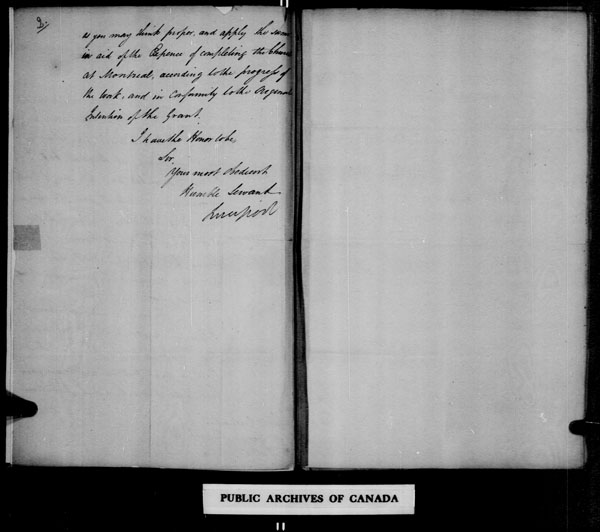 2/.
as you may think proper, and apply the same
in aid of the Expence of completing the Church
at Montreal, according to the progress of
the work, and in Conformity to the
Intention of the Grant.
I have the Honor to be,
Sir,
Your most Obedient
Humble Servant
Liverpool
PUBLIC ARCHIVES OF CANADA